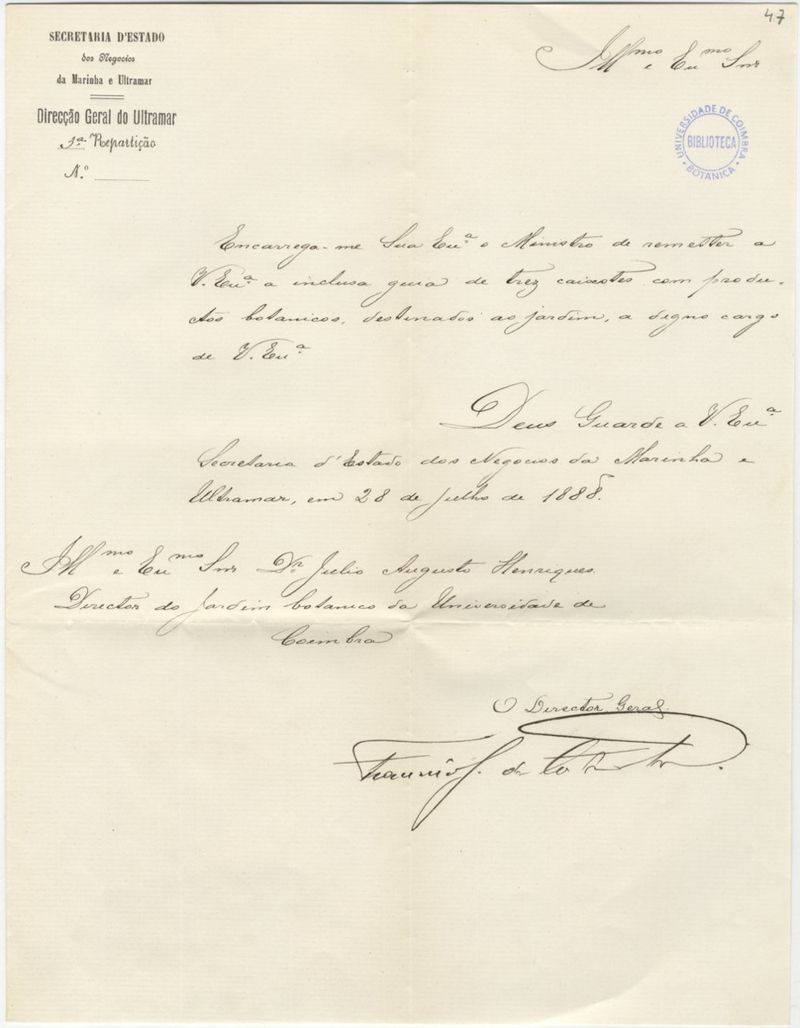 47
SECRETARIA D'ESTADO
dos Negocios
da Marinha e Ultramar
Direcção Geral do Ultramar
3.ª Repartição
N.º
Ill.mo e Ex.mo Snr
UNIVERSIDADE DE COIMBRA
BIBLIOTECA
BOTANICA
Encarrega-me Sua Ex.ª o Ministro de remetter a
V. Ex.ª a inclusa guia de trez caixotes com produ-
ctos botanicos, destinados ao jardim, a digno cargo
de V. Ex.ª
Deus Guarde a V. Ex.ª
Secretaria d'Estado dos Negocios da Marinha e
Ultramar, em 28 de Julho de 1888.
Ill.mo e Ex.mo Snr Dr Julio Augusto Henriques.
Director do Jardim botanico da Universidade de
Coimbra
O Director Geral.
Francisco J. da Costa